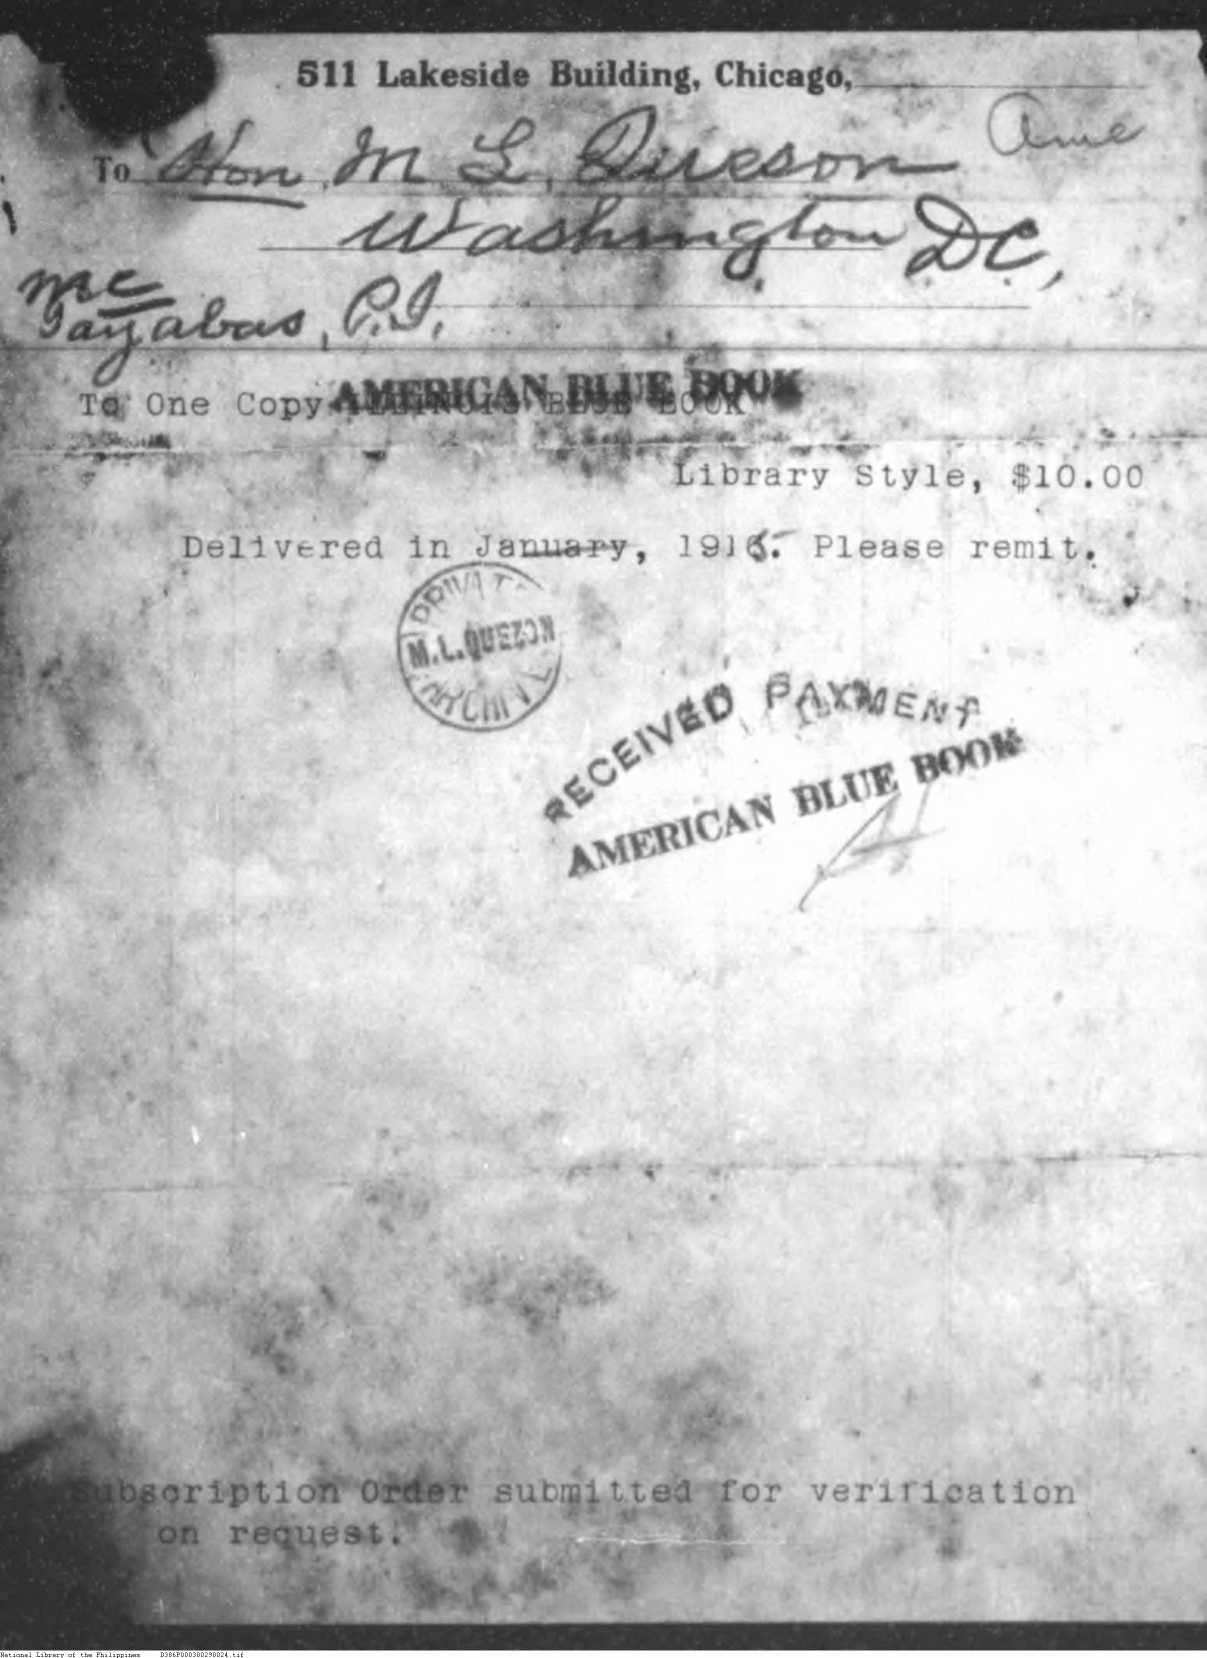 511 Lakeside Building, Chicago,
Ame
To Hon. M. L. Queson
Washington D.C.,
mc
Tayabas, P.I.
To One Copy ILLINOIS BLUE BOOK
AMERICAN BLUE BOOK
Library Style, $10.00
Delivered in January, 1916. Please remit.
PRIVATE
M.L.QUEZON
ARCHIVE
RECEIVED PAYMENT
AMERICAN BLUE BOOK
Subscription Order submitted for verification
on request.
National Library of the Philippines D386P000300290024.tif